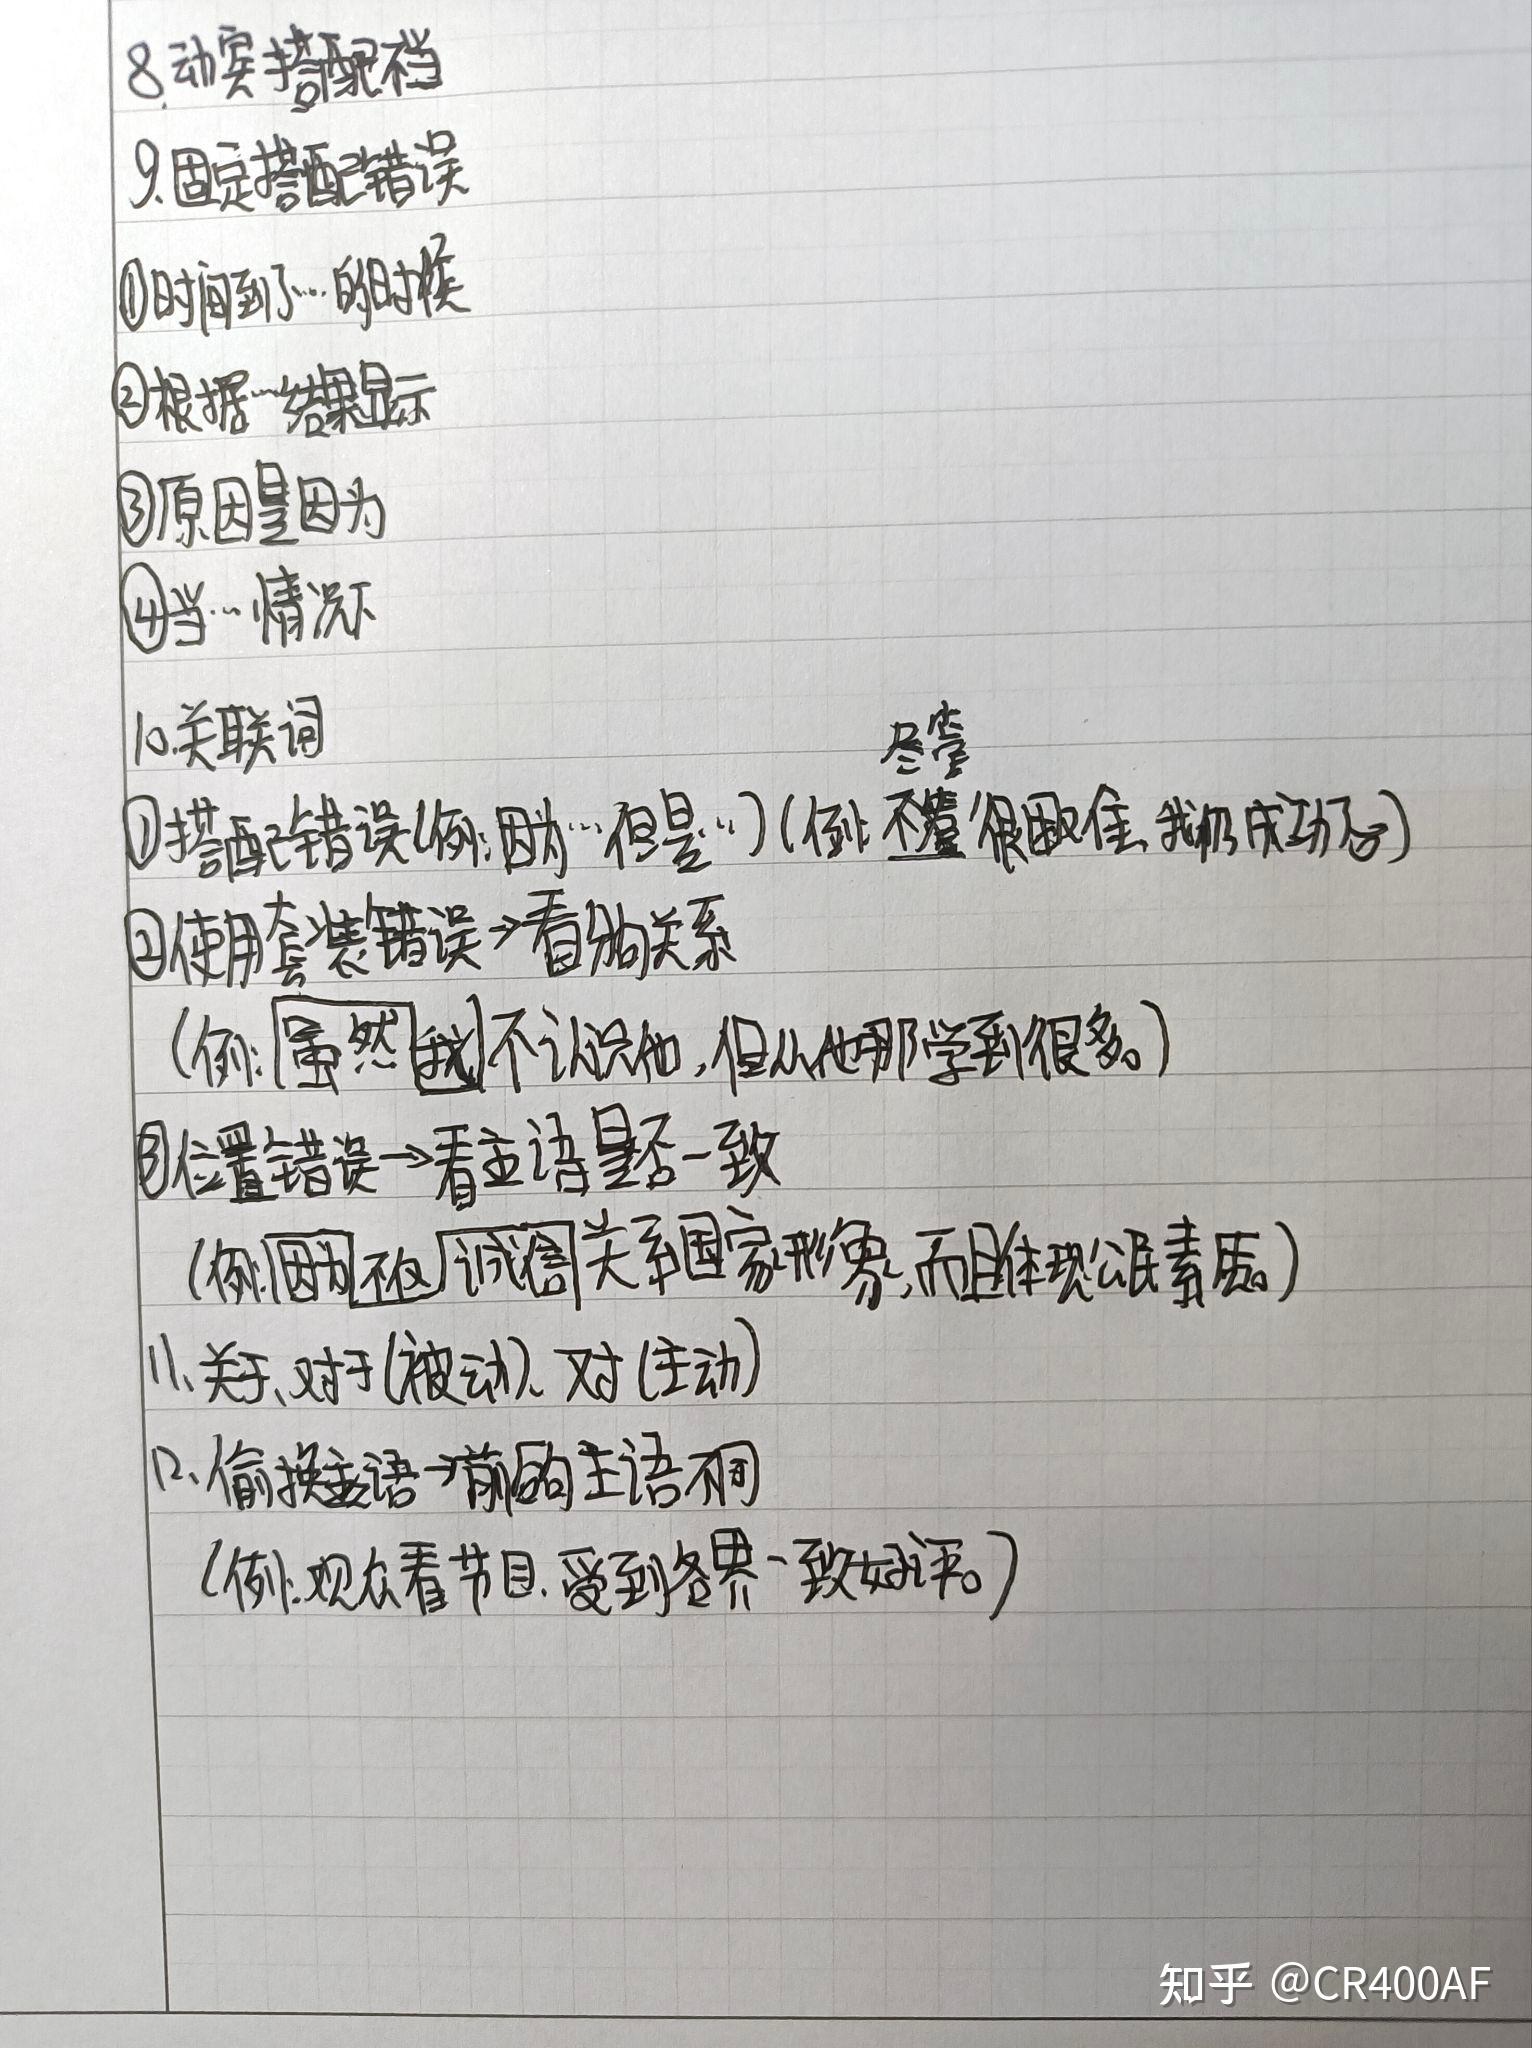 8.动宾搭配不当
9.固定搭配错误
①时间到了…的时候
②根据…结果显示
③原因是因为
④当…情况下
10.关联词
尽管
①搭配错误(例:因为…但是…)(例:不管很困难,我仍成功了)
②使用套装错误→看分句关系
(例:虽然我不认识他,但从他那学到很多。)
③位置错误→看主语是否一致
(例:因为不仅诚信关系国家形象,而且体现公民素质。)
11、关于、对于(被动)、对(主动)
12、偷换主语→前后的主语不同
(例:观众看节目,受到各界一致好评。)
知乎 @CR400AF